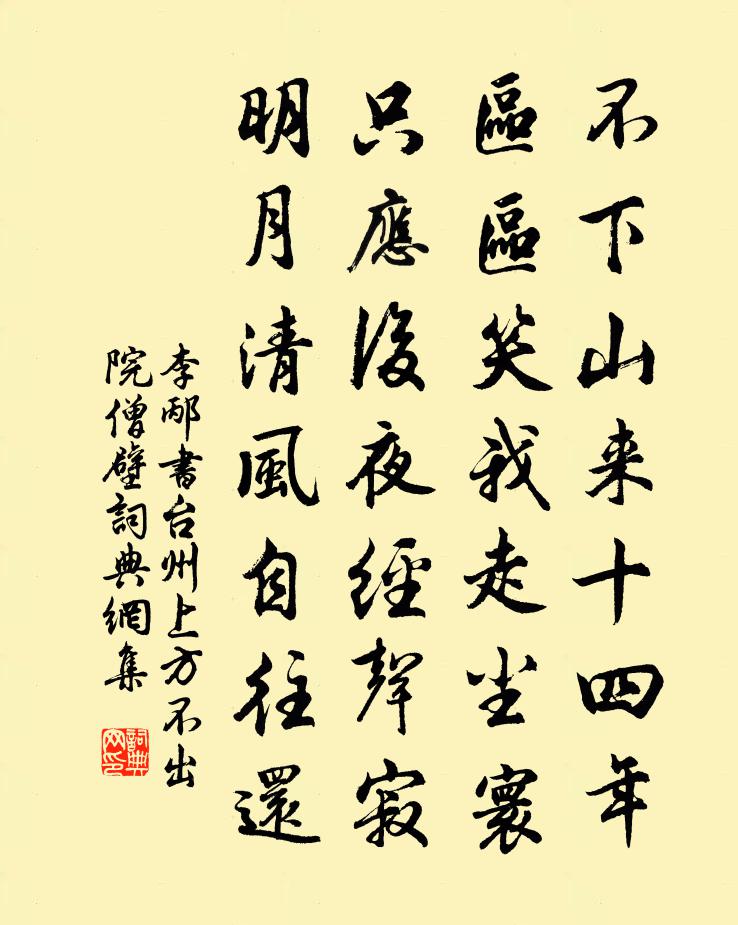 不下山来十四年
區區笑我走尘寰
只應後夜經聲寂
明月清風自往還
李邴書台州上方不出
院僧壁詞典網集
詞典網印